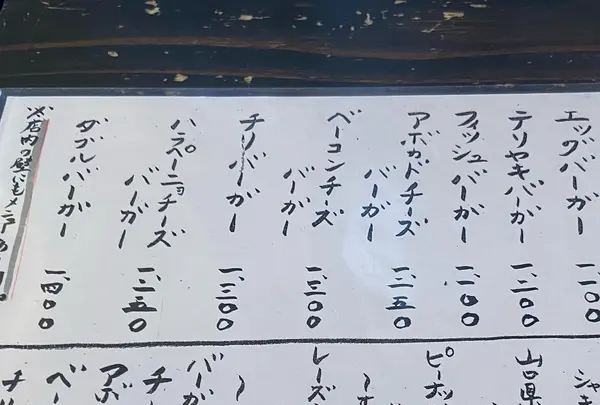 エッグバーガー 一、一〇〇
テリヤキバーガー 一、二〇〇
フィッシュバーガー 一、一〇〇
アボカドチーズ
バーガー 一、二五〇
ベーコンチーズ
バーガー 一、二〇〇
チリバーガー 一、二〇〇
ハラペーニョチーズ
バーガー 一、二五〇
ダブルバーガー 一、四〇〇
※店内の壁にもメニューあり。
シャキ
山口県
ピーホッ
〜
レーズ
〜
バーガ
チ
アボ
ベー
チリ